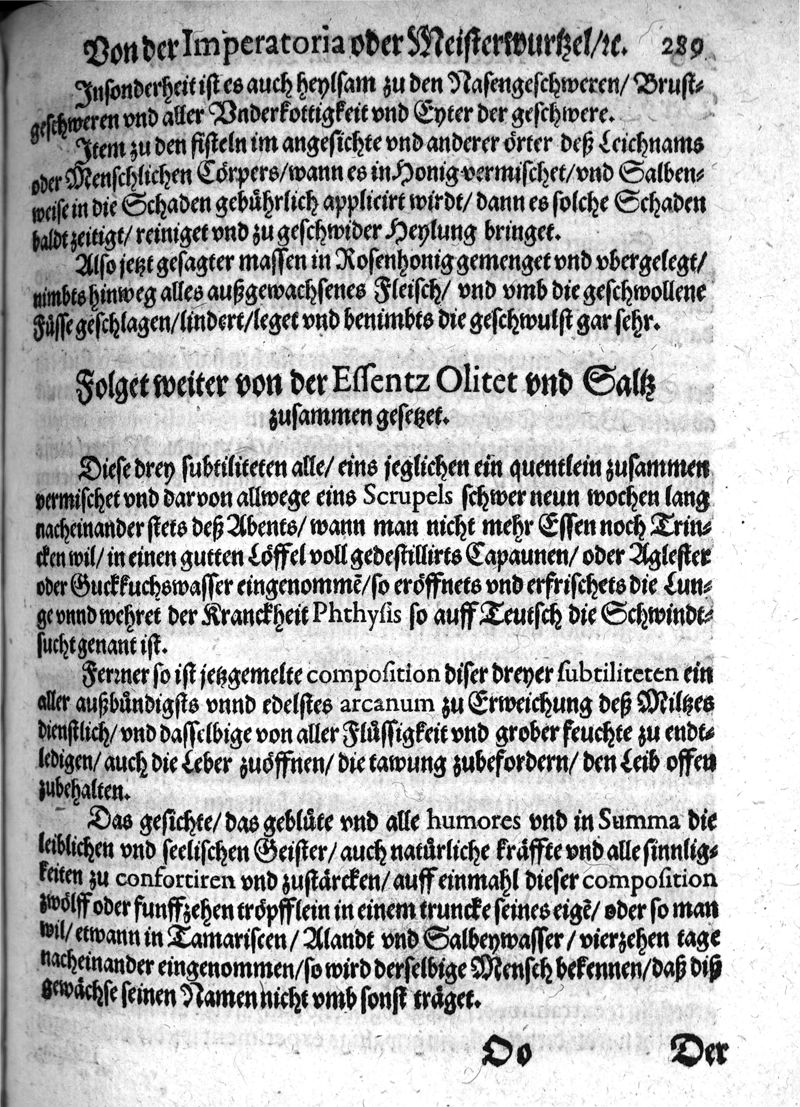 Von der Imperatoria oder Meisterwurtzel/ꝛc. 289
Insonderheit ist es auch heylsam zu den Nasengeschweren/ Brust-
geschweren vnd aller Vnderkottigkeit vnd Eyter der geschwere.
Item zu den fisteln im angesichte vnd anderer örter deß Leichnams
oder Menschlichen Cörpers/wann es in Honig vermischet/vnd Salben-
weise in die Schaden gebührlich applicirt wirdt/ dann es solche Schaden
baldt zeitigt/ reiniget vnd zu geschwider Heylung bringet.
Also jetzt gesagter massen in Rosenhonig gemenget vnd vbergelegt/
nimbts hinweg alles außgewachsenes Fleisch/ vnd vmb die geschwollene
Füsse geschlagen/lindert/leget vnd benimbts die geschwulst gar sehr.
Folget weiter von der Essentz Olitet vnd Saltz
zusammen gesetzet.
Diese drey subtiliteten alle/ eins jeglichen ein quentlein zusammen
vermischet vnd darvon allwege eins Scrupels schwer neun wochen lang
nacheinander stets deß Abents/ wann man nicht mehr Essen noch Trin-
cken wil/ in einen gutten Löffel voll gedestillirts Capaunen/ oder Aglester
oder Guckkuchswasser eingenommē/so eröffnets vnd erfrischets die Lun-
ge vnnd wehret der Kranckheit Phthysis so auff Teutsch die Schwindt-
sucht genant ist.
Ferrner so ist jetzgemelte composition diser dreyer subtiliteten ein
aller außbündigsts vnnd edelstes arcanum zu Erweichung deß Miltzes
dienstlich/ vnd dasselbige von aller Flüssigkeit vnd grober feuchte zu endt-
ledigen/ auch die Leber zuöffnen/ die tawung zubefordern/ den Leib offen
zubehalten.
Das gesichte/ das geblüte vnd alle humores vnd in Summa die
leiblichen vnd seelischen Geister/ auch natürliche kräffte vnd alle sinnlig-
keiten zu confortiren vnd zustärcken/ auff einmahl dieser composition
zwölff oder funffzehen tröpfflein in einem truncke seines eigē/ oder so man
wil/ etwann in Tamariscen/ Alandt vnd Salbeywasser/ vierzehen tage
nacheinander eingenommen/so wird derselbige Mensch bekennen/daß diß
gewächse seinen Namen nicht vmb sonst träget.
Oo Der